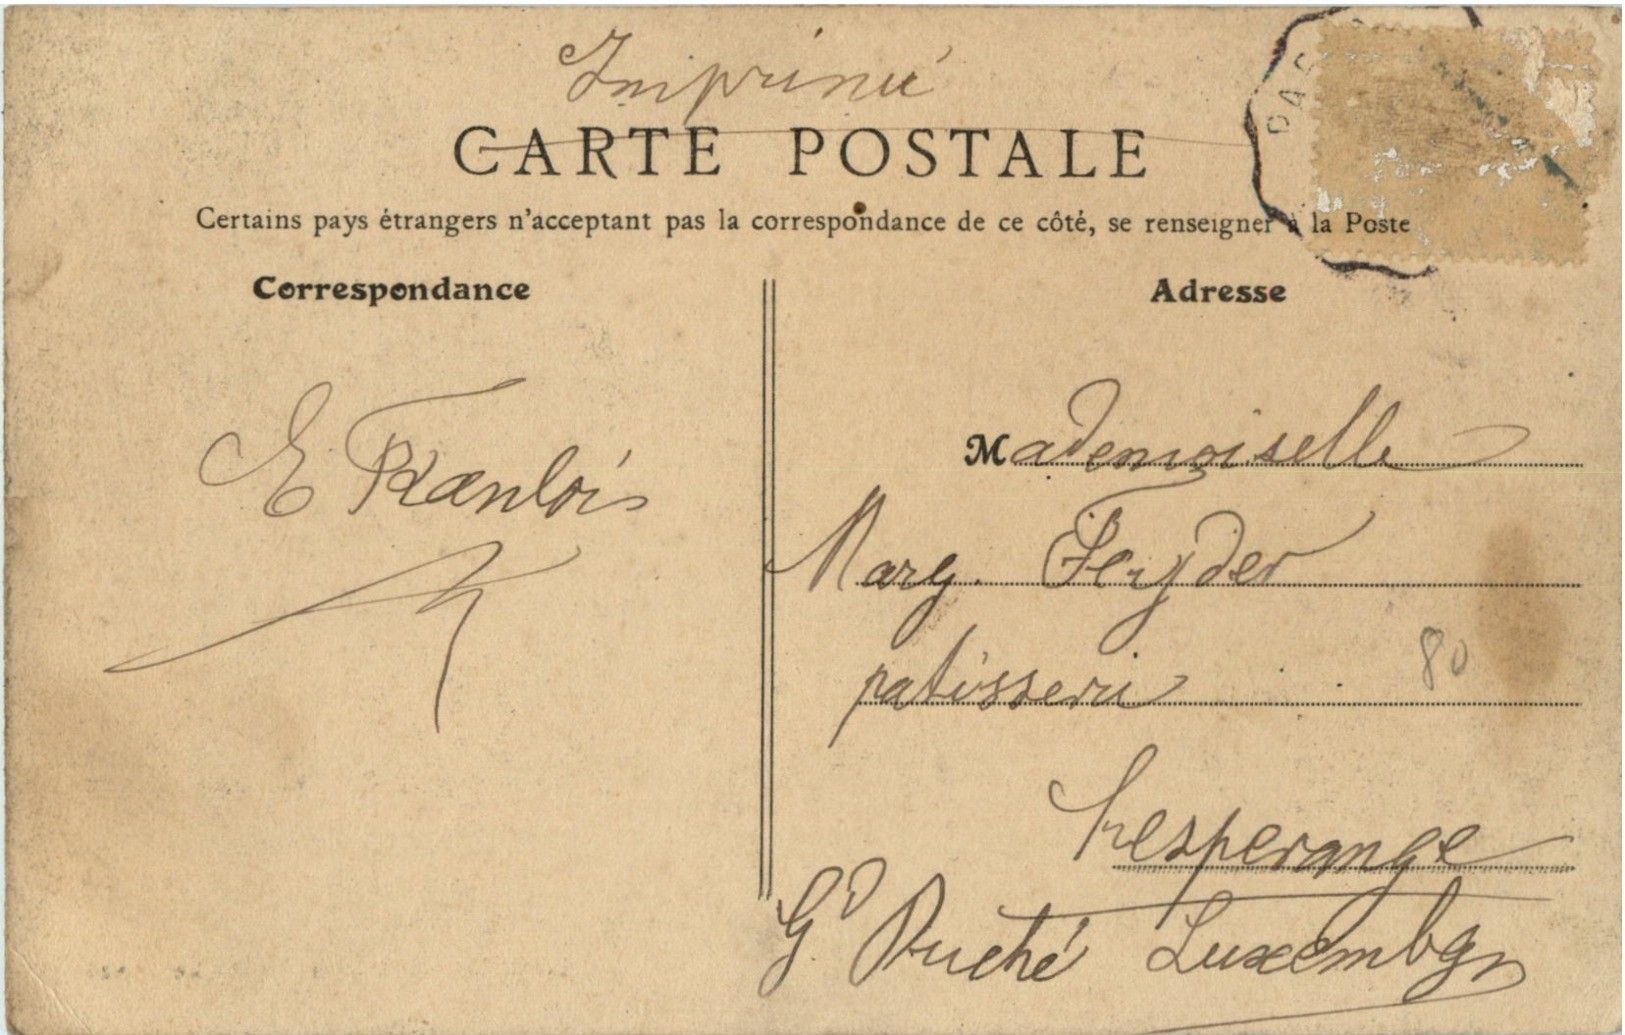 Imprimé
CARTE POSTALE
Certains pays étrangers n'acceptant pas la correspondance de ce côté, se renseigner à la Poste
Correspondance
E
Adresse
Mademoiselle
Marg. Feyder
patisserie
80
Hesperange
Gd. Duché Luxembg